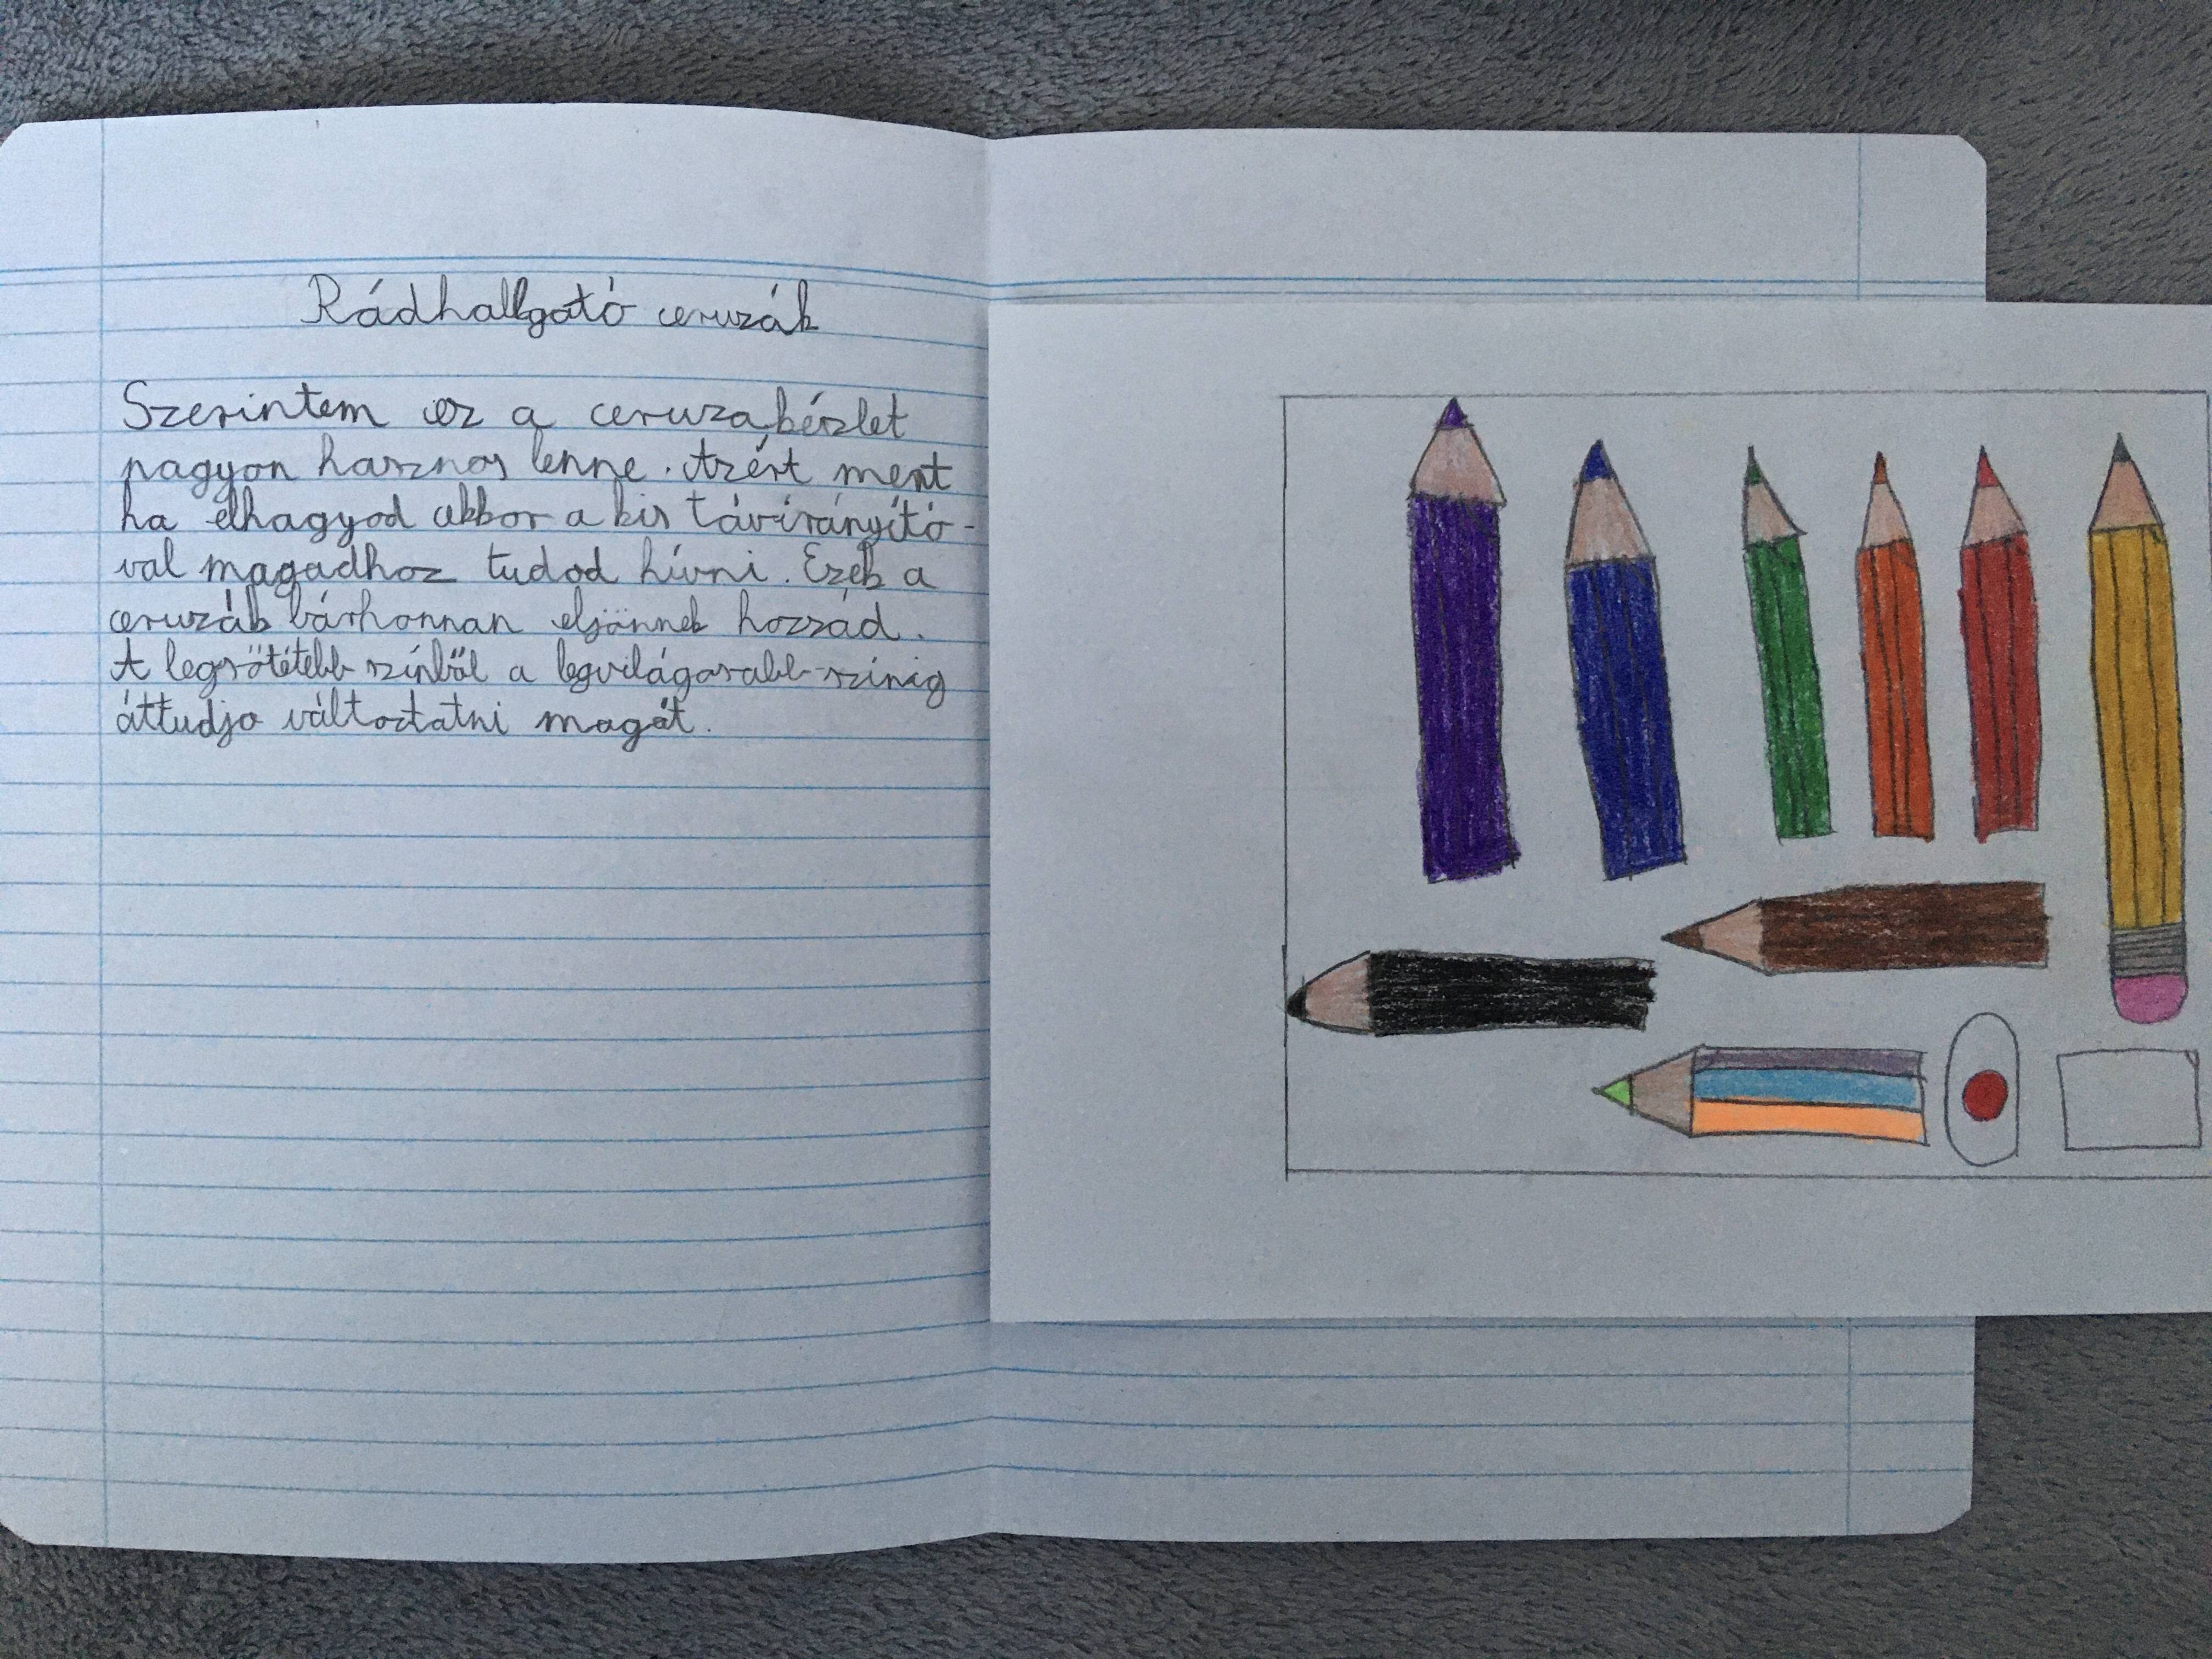 Rádhallgató ceruzák
Szerintem ez a ceruzakészlet
nagyon hasznos lenne. Azért mert
ha elhagyod akkor a kis távirányító-
val magadhoz tudod hívni. Ezek a
ceruzák bárhonnan eljönnek hozzád.
A legsötétebb színből a legvilágosabb színig
áttudja változtatni magát.